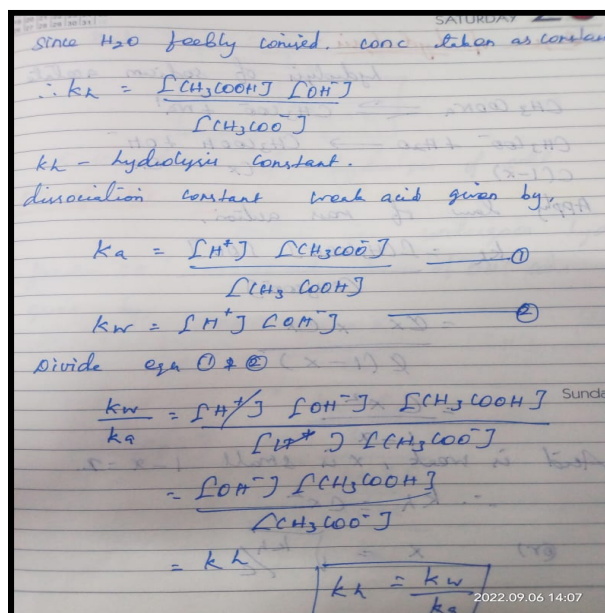 SATURDAY
Since H2O feebly ionised. conc taken as constan
∴ kh = [CH3COOH] [OH-]
[CH3COO-]
kh - hydrolysis constant.
dissociation constant weak acid given by,
ka = [H+] [CH3COO-] ①
[CH3COOH]
kw = [H+] [OH-] ②
Divide eqn ① & ②
kw = [H+] [OH-] [CH3COOH]
ka [H+] [CH3COO-]
Sunda
= [OH-] [CH3COOH]
[CH3COO-]
= kh
kh = kw
ka
2022.09.06 14:07